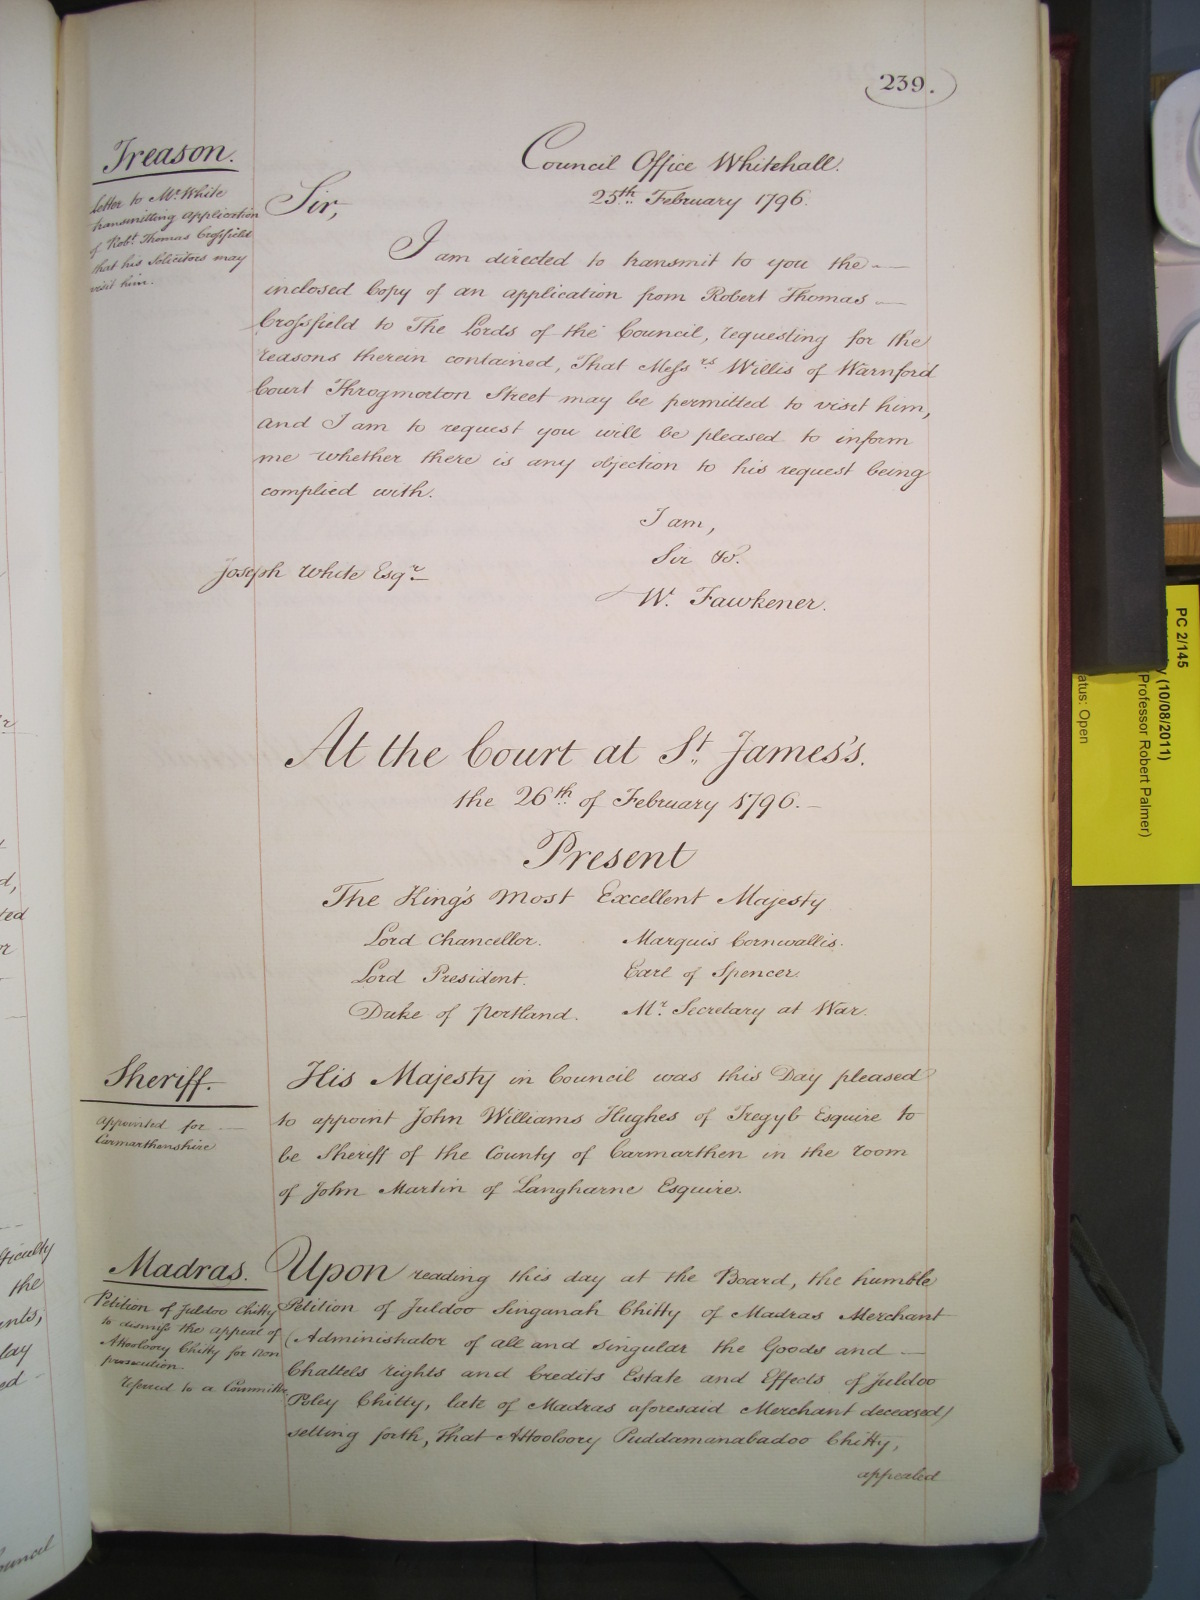 239.
Treason.
letter to Mr. White
transmitting application
of Robt. Thomas Crossfield
that his Solicitors may
visit him.
Council Office Whitehall.
25th. February 1796.
Sir,
I am directed to transmit to you the
inclosed Copy of an application from Robert Thomas
Crossfield to The Lords of the Council, requesting for the
reasons therein contained, That Messrs Willis of Warnford
Court Throgmorton Street may be permitted to visit him,
and I am to request you will be pleased to inform
me whether there is any objection to his request being
complied with.
I am,
Sir &c.
Joseph White Esqr.
W. Fawkener.
At the Court at St. James's.
the 26th. of February 1796.
Present
The King's Most Excellent Majesty
Lord Chancellor. Marquis Cornwallis.
Lord President. Earl of Spencer.
Duke of Portland. Mr. Secretary at War.
Sheriff.
appointed for
Carmarthenshire
His Majesty in Council was this Day pleased
to appoint John Williams Hughes of Tregyb Esquire to
be Sheriff of the County of Carmarthen in the room
of John Martin of Langharne Esquire.
Madras.
Petition of Juldoo Chitty
to dismiss the appeal of
Attooloory Chitty for non
prosecution
referred to a Committee
Upon reading this day at the Board, the humble
Petition of Juldoo Singanah Chitty of Madras Merchant
(Administrator of all and singular the Goods and
Chattels rights and Credits Estate and Effects of Juldoo
Poley Chitty, late of Madras aforesaid Merchant deceased)
setting forth, That Attooloory Puddamanabadoo Chitty,
appealed
PC 2/145
(10/08/2011)
Professor Robert Palmer)
atus: Open